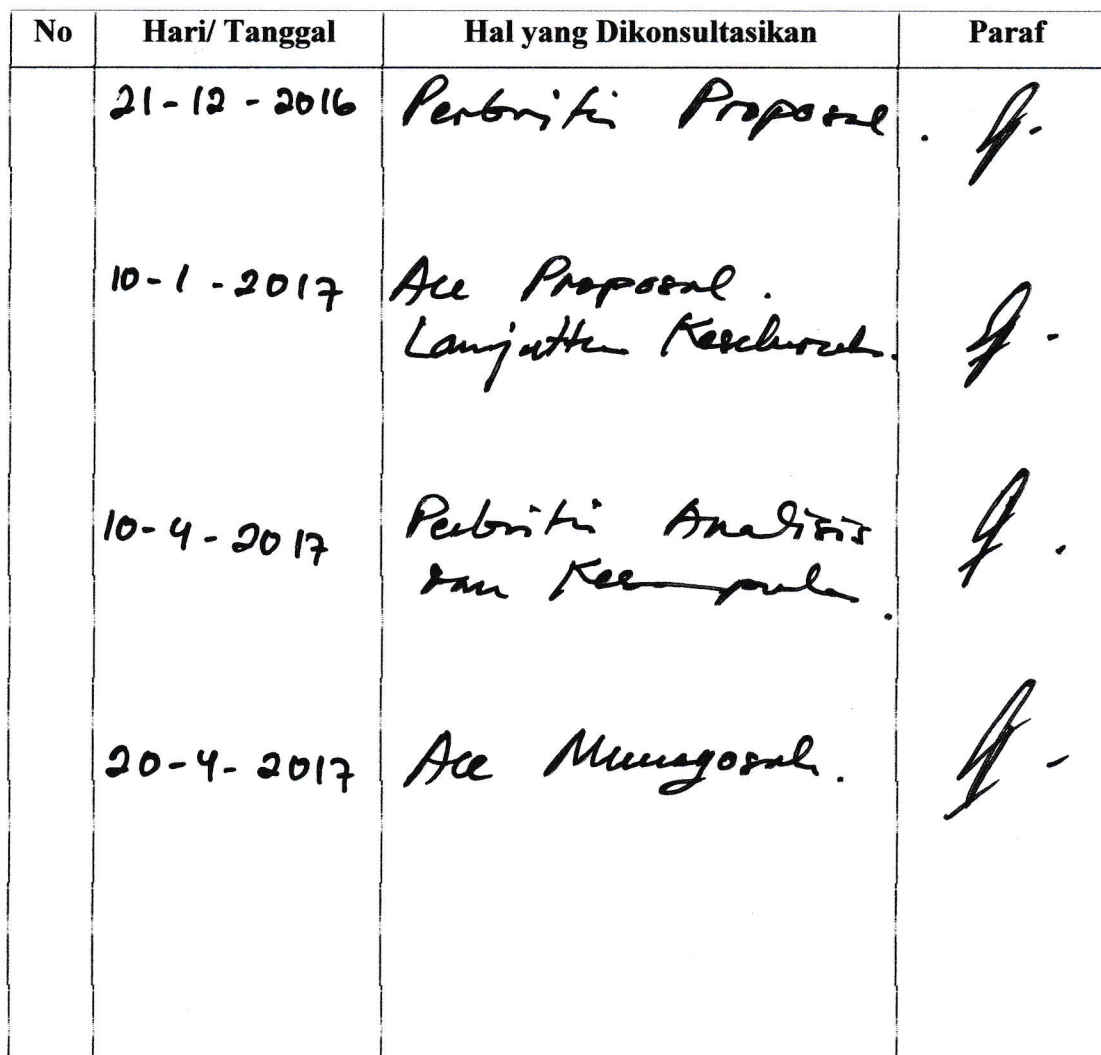 No Hari/ Tanggal Hal yang Dikonsultasikan Paraf
21-12-2016 Perbaiki Proposal.
10-1-2017 Acc Proposal.
Lanjutkan Keseluruhan.
10-4-2017 Perbaiki Analisis
dan Kesimpulan.
20-4-2017 Acc Munaqosah.